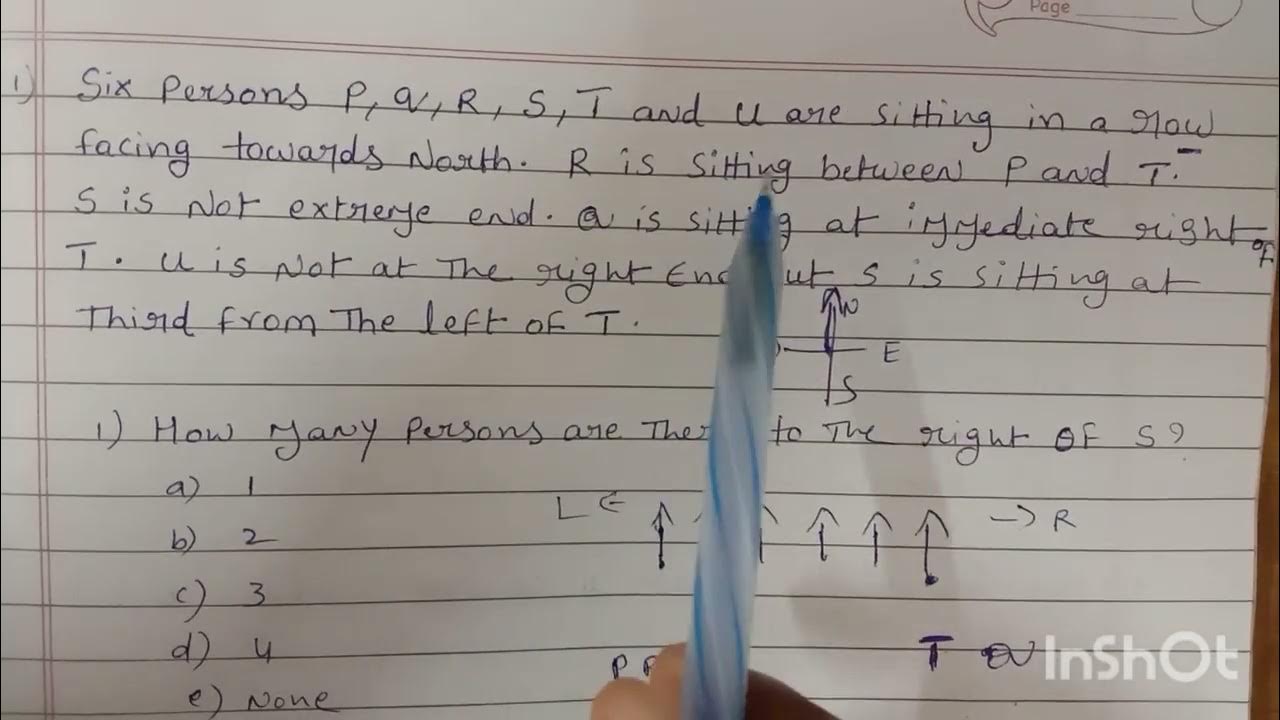 Page
1) Six Persons P, Q, R, S, T and U are sitting in a row
facing towards North. R is Sitting between P and T.
S is Not extreme end. Q is sitting at immediate right of
T. U is Not at The right End but S is sitting at
Third from The left of T.
N
E
S
1) How Many Persons are There to The right of S?
a) 1
L ← → R
b) 2
c) 3
d) 4
P T Q
e) None
InShOt